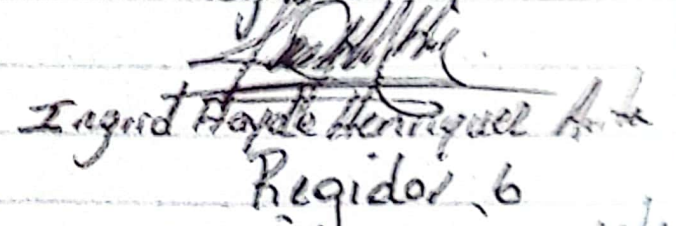 Ingrid Hayde Henriquez
Regidor, 6